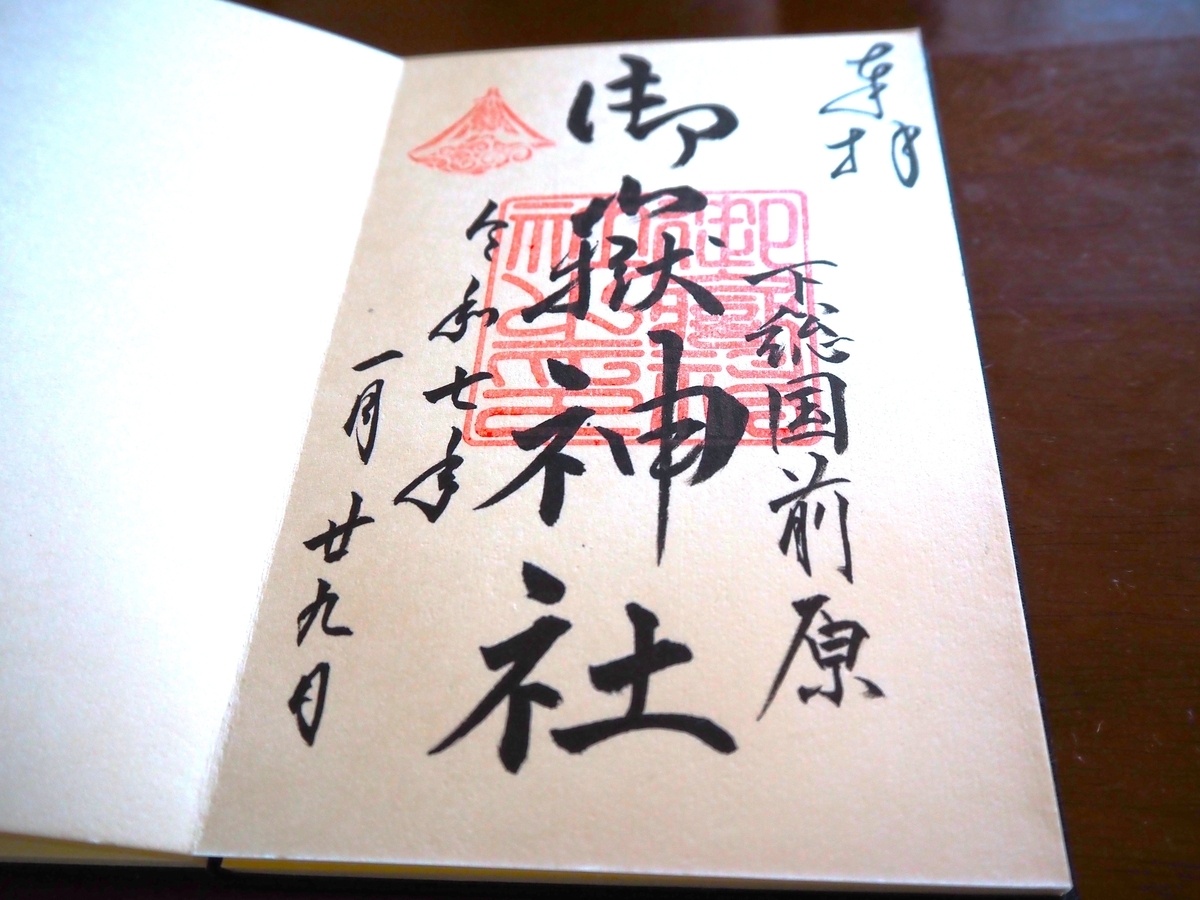 奉拝
下総国前原
御嶽神社
令和七年
一月廿九日